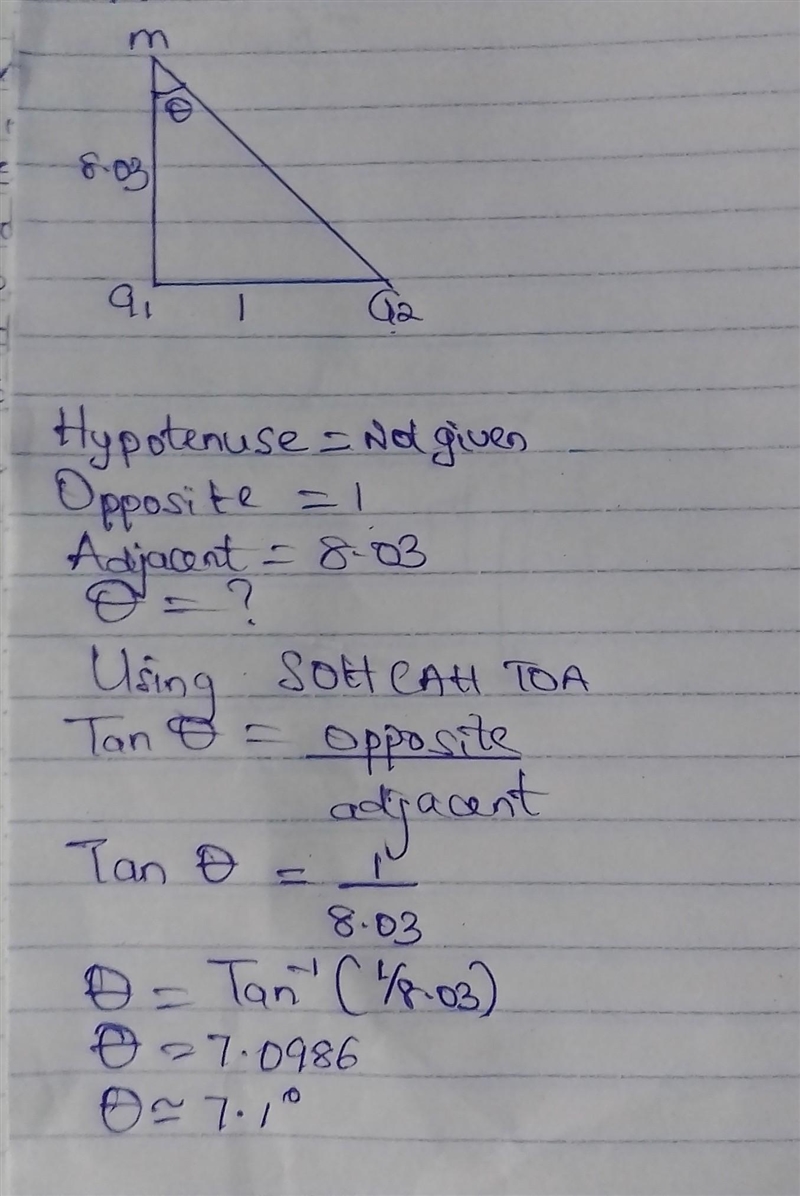 m
θ
8.03
Q1 1 Q2
Hypotenuse = Not given
Opposite = 1
Adjacent = 8.03
θ = ?
Using SOH CAH TOA
Tan θ = opposite
adjacent
Tan θ = 1
8.03
θ = Tan⁻¹ (1/8.03)
θ = 7.0986
θ ≃ 7.1°